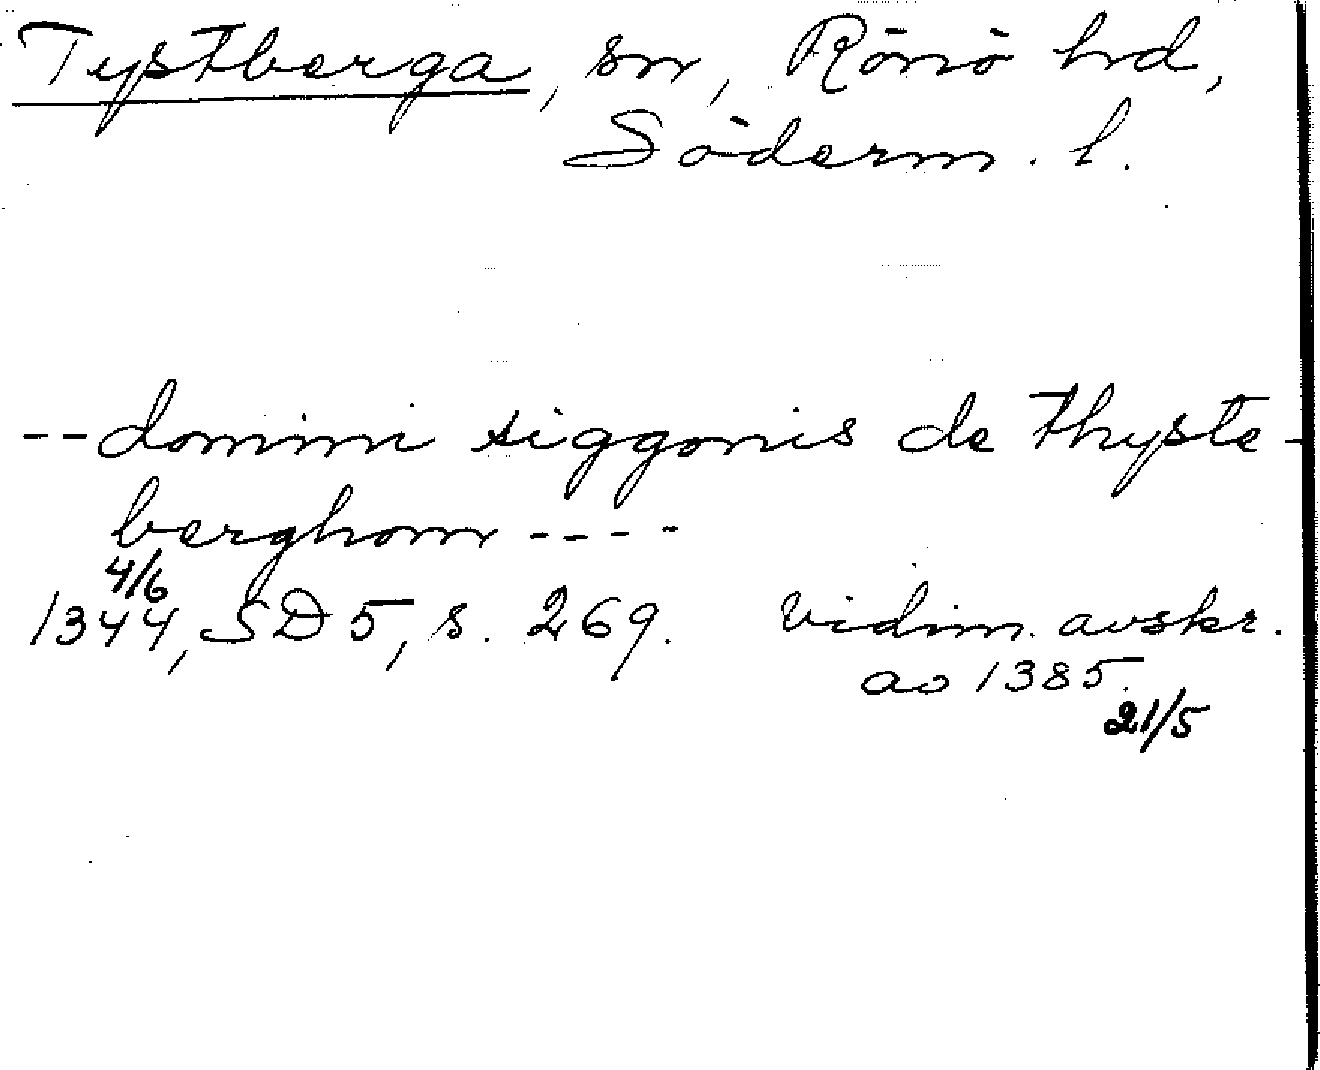 Tystberga, sn, Rönö hd,
Söderm. l.
-- domini siggonis de thyste-
berghom ----
4/6
1344, SD 5, s. 269. Vidim. avskr.
ao 1385.
21/5